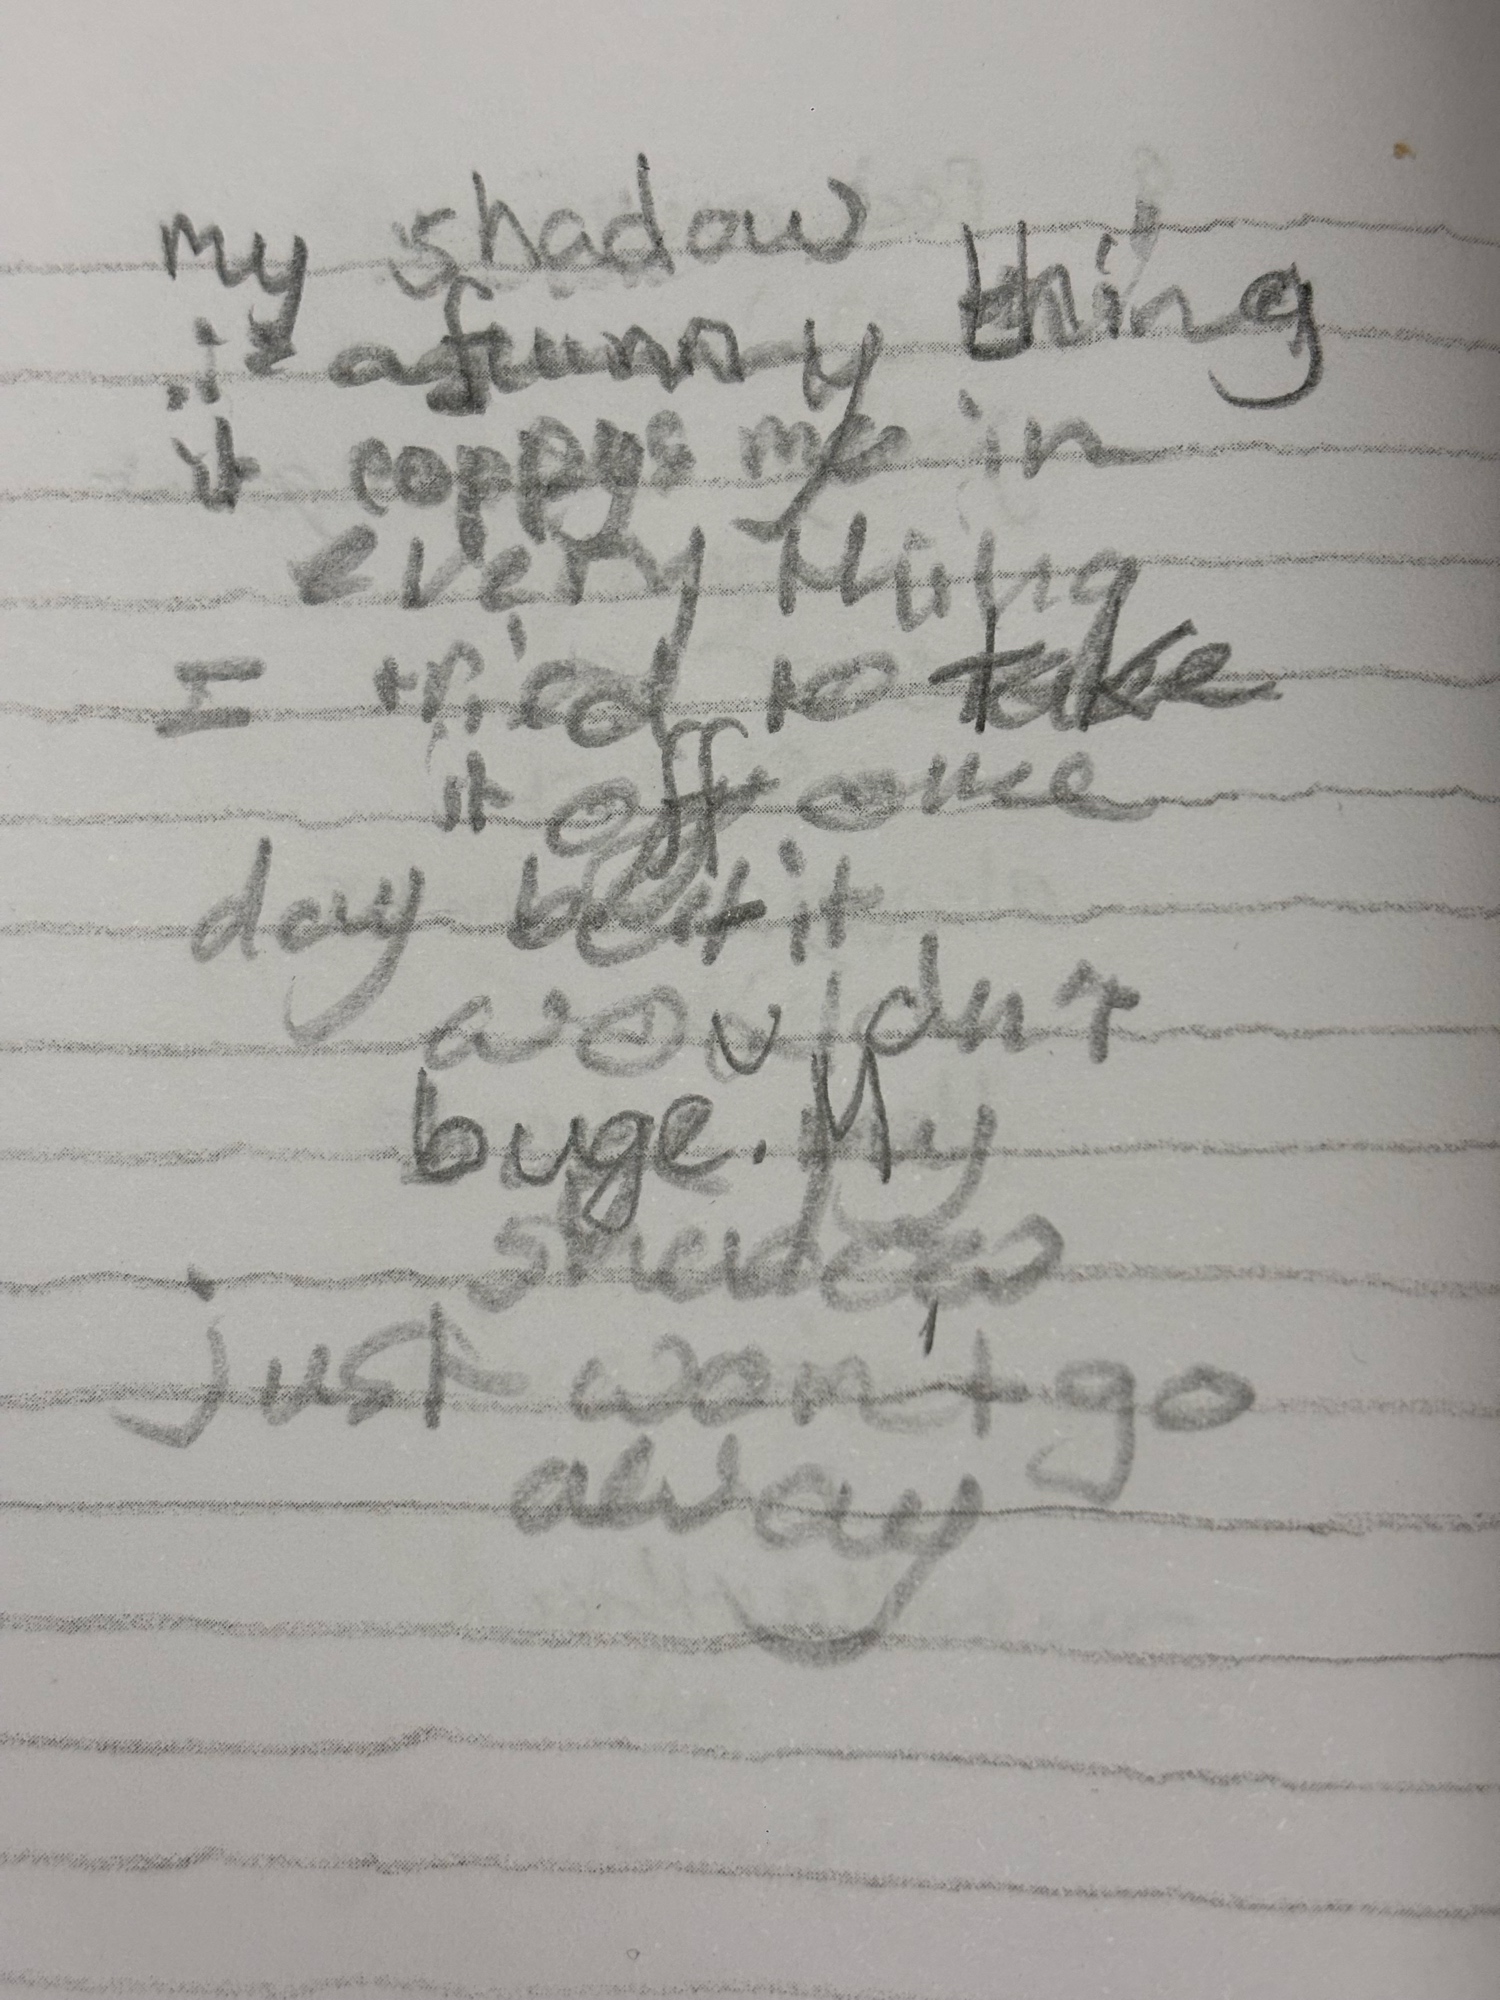 my shadow
is a funny thing
it coppys me in
every thing
I tried to take
it off one
day but it
wouldn't
buge. My
shadow
just won't go
away